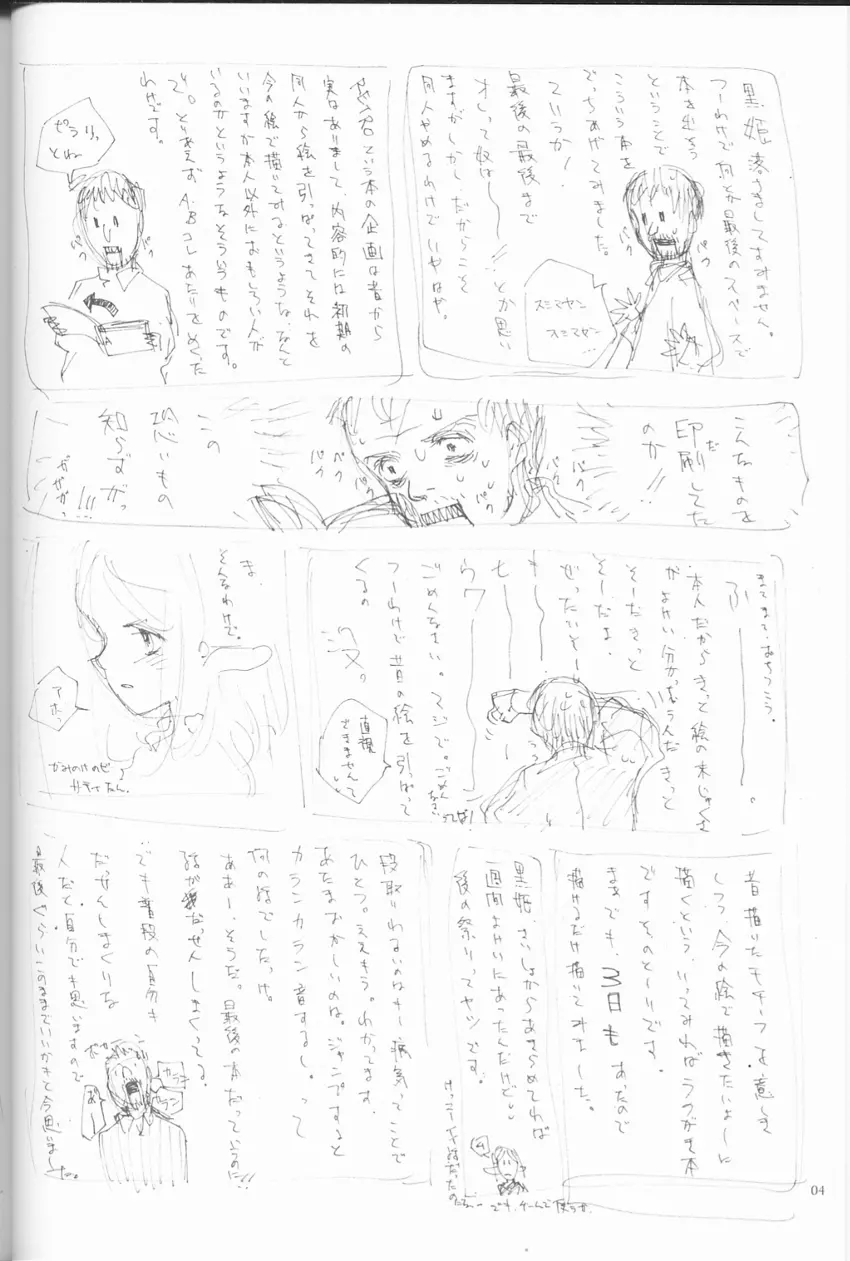 黒姫落ちましてすみません。
つーわけで何とか最後のスペースで
本を出そう
ということで
こういう本を
でっちあげてみました。
ていうか!
最後の最後まで
オレって奴はーー!!とか思い
ますがしかし、だからこそ
同人やめるわけで いやはや。
スミマセン
スミマセン
パク
パク
という本の企画は昔から
実はありまして、内容的には初期の
同人から絵を引っぱってきてそれを
今の絵で描いてみるというような、なんと
いいますか本人以外におもしろい人が
いるのかというようなそういうものです。
で。とりあえず A・Bコレあたりをめくった
わけです。
ピラリっ
とね
パク
パク
A
こんなものを
印刷してた
だ
のか!!
この
恐いもの
知らずがっ
ガガガっ!!!
パク
パク
パク
パク
まてまて、おちつこう。
ふーーー。
本人だからきっと絵の未じゅくさ
がよけい分かっちゃうんだきっと
そーだきっと
そーだよ
ぜったいそー
ごめんなさい。マジで。
つーわけで昔の絵を引っぱって
くるの
没。
直視
できませんて
ま、
そんなわけで。
アホっ
昔描いたモチーフを意しき
しつつ今の絵で描きたいよーに
描くという、いってみればらくがき本
ですそのとーりです。
まあでも、3日もあったので
描けるだけ描いてみました。
黒姫、さいしょからあきらめてれば
一週間よけいにあったんだけど。
後の祭りってヤツです。
段取りわるいのはもー病気ってことで
ひとつ。ええもう。わかってます。
あたまおかしいのは。ジャンプすると
カランカラン音するし。って
何の話でしたっけ。
ああー、そうだ。最後の本だっていうのに!!
話がだっせんしまくってる。
でも普段の自分も
だっせんしまくりな
人だと自分でも思いますので
最後くらいこのままでいいかもと今思いました。
カラン
カラン
04